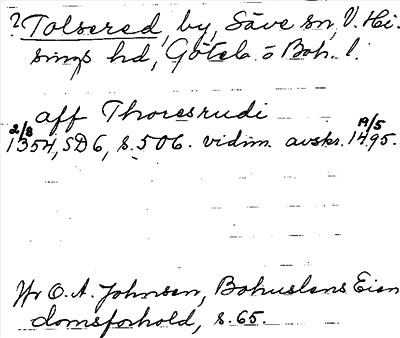 ? Tolsered, by, Säve sn, V. Hi-
sings hd, Göteb. o Boh. l.
aff Thoresrudi
2/8 1354, SD 6, s. 506. vidim. avskr. 19/5 1495.
Jfr O. A. Johnsen, Bohusläns Eien
domsforhold, s. 65.